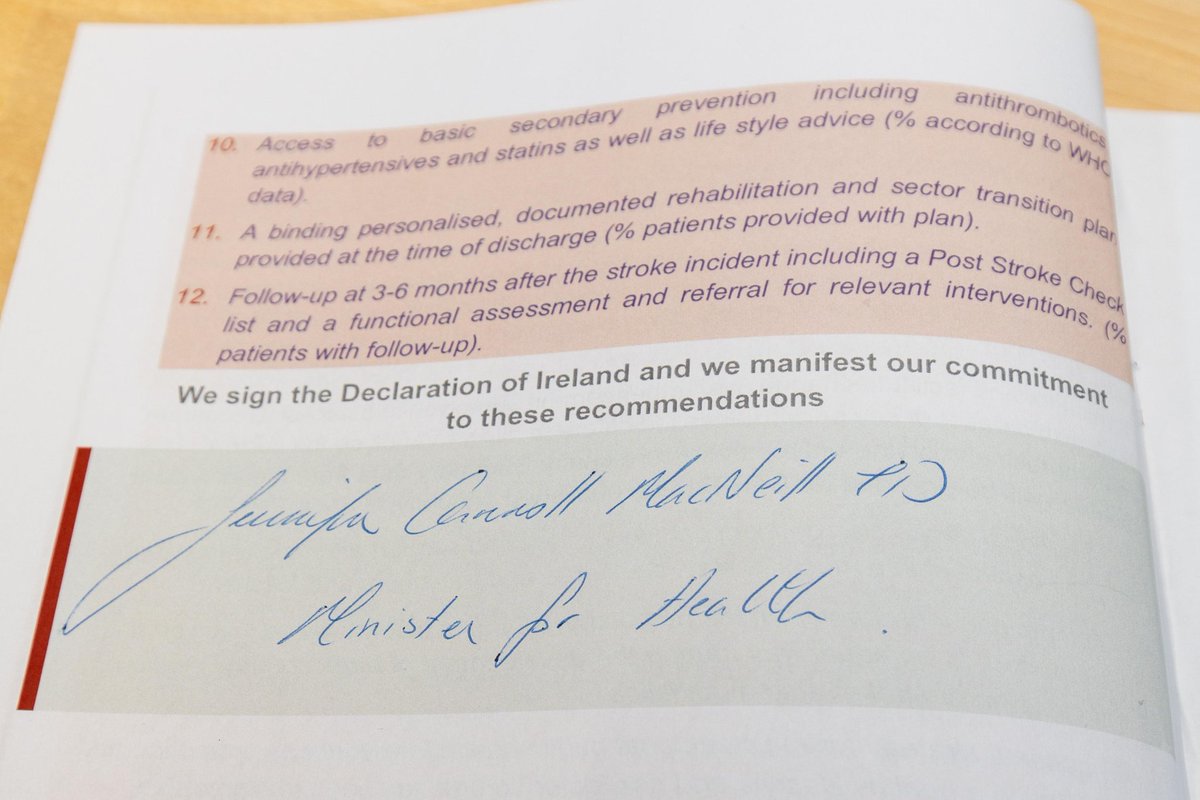 10. Access to basic secondary prevention including antithrombotics
antihypertensives and statins as well as life style advice (% according to WHO
data).
11. A binding personalised, documented rehabilitation and sector transition plan
provided at the time of discharge (% patients provided with plan).
12. Follow-up at 3-6 months after the stroke incident including a Post Stroke Check
list and a functional assessment and referral for relevant interventions. (%
patients with follow-up).
We sign the Declaration of Ireland and we manifest our commitment
to these recommendations
Jennifer Carroll MacNeill TD
Minister for Health.